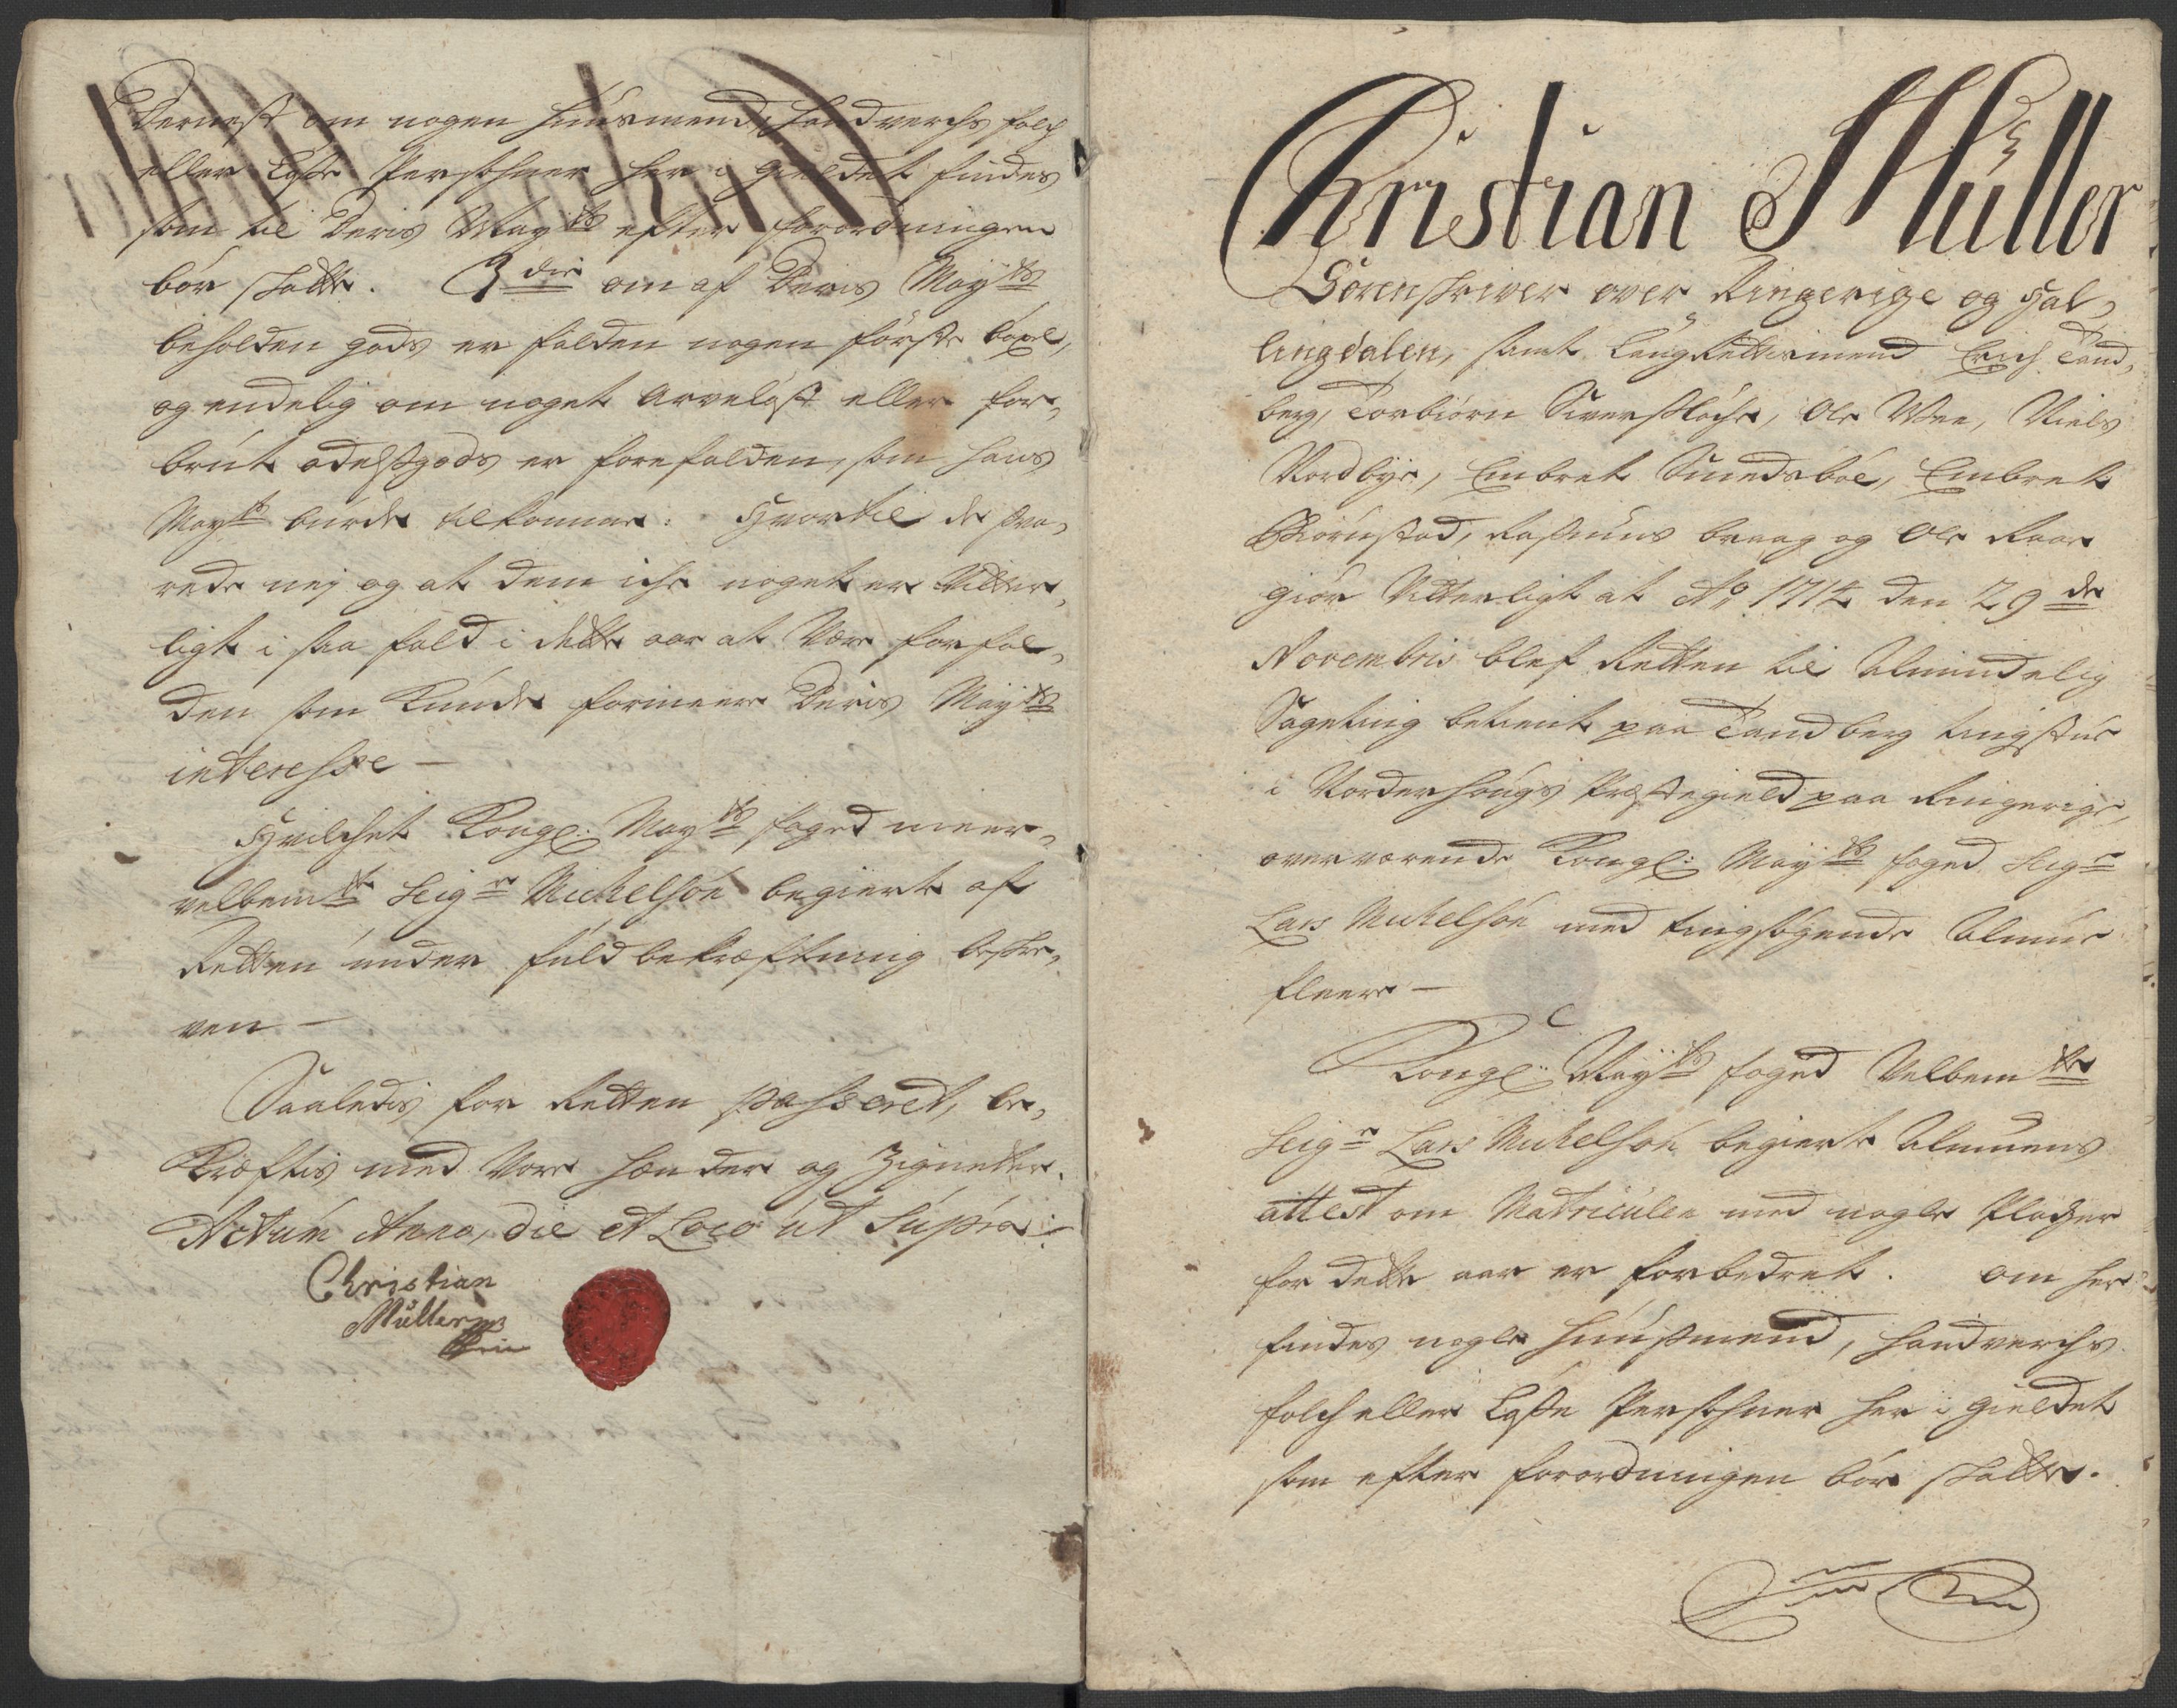 Dernest om nogen huusmend, handverchs folch
eller Løse Persohner her i gieldet findes
som til Deris Mayts efter forordningen
bør skatte. 3die om af Deris Mayts
beholden gods er falden nogen første bøxel,
og endelig om noget arveløst eller for,
brut odelsgods er forefalden, som hans
Mayts burde tilkomme: Hvortil de sva,
rede nej og at dem iche noget er Vitter,
ligt i saa fald i dette aar at Være forfal,
den som kunde formeere Deris Mayts
interesse —
Hvilchet Kongl: Mayts foged meer,
velbemte Seigr Michelsøn begierte af
Retten under fuld bekræftning beskre,
ven —
Saaledis for Retten passeret, be,
kræftis med Vore hænder og Zignetter.
Actum Anno, die et Loco út Supra :
Christian
Müller mp
Christian Müller
Sorenskriver over Ringerige og Hal,
lingdalen, samt Laugrettismend Erich Tand,
berg, Torbiørn Sversløche, Ole Wee, Niels
Nordbye, Embret Smedsbøl, Embret
Biørnstad, Rasmus braag og Ole Raae
giør Vitterligt at Ao 1714 den 29de
Novembris blef Retten til Almindelig
Sageting betient paa Tandberg tingstue
i Norderhougs Prestegield paa Ringerige,
overværende Kongl: Mayts foged Seigr
Lars Michelsøn med tingsøgende Almue
fleere —
Kongl: Mayts foged Velbemte
Seigr Lars Michelsøn begierte Almuens
attest om Matriculen med nogle Pladzer
for dette aar er forbedret. om her
findes nogle huusmend, handverchs
folch eller Løse Persohner her i gieldet
som efter forordningen bør skatte.